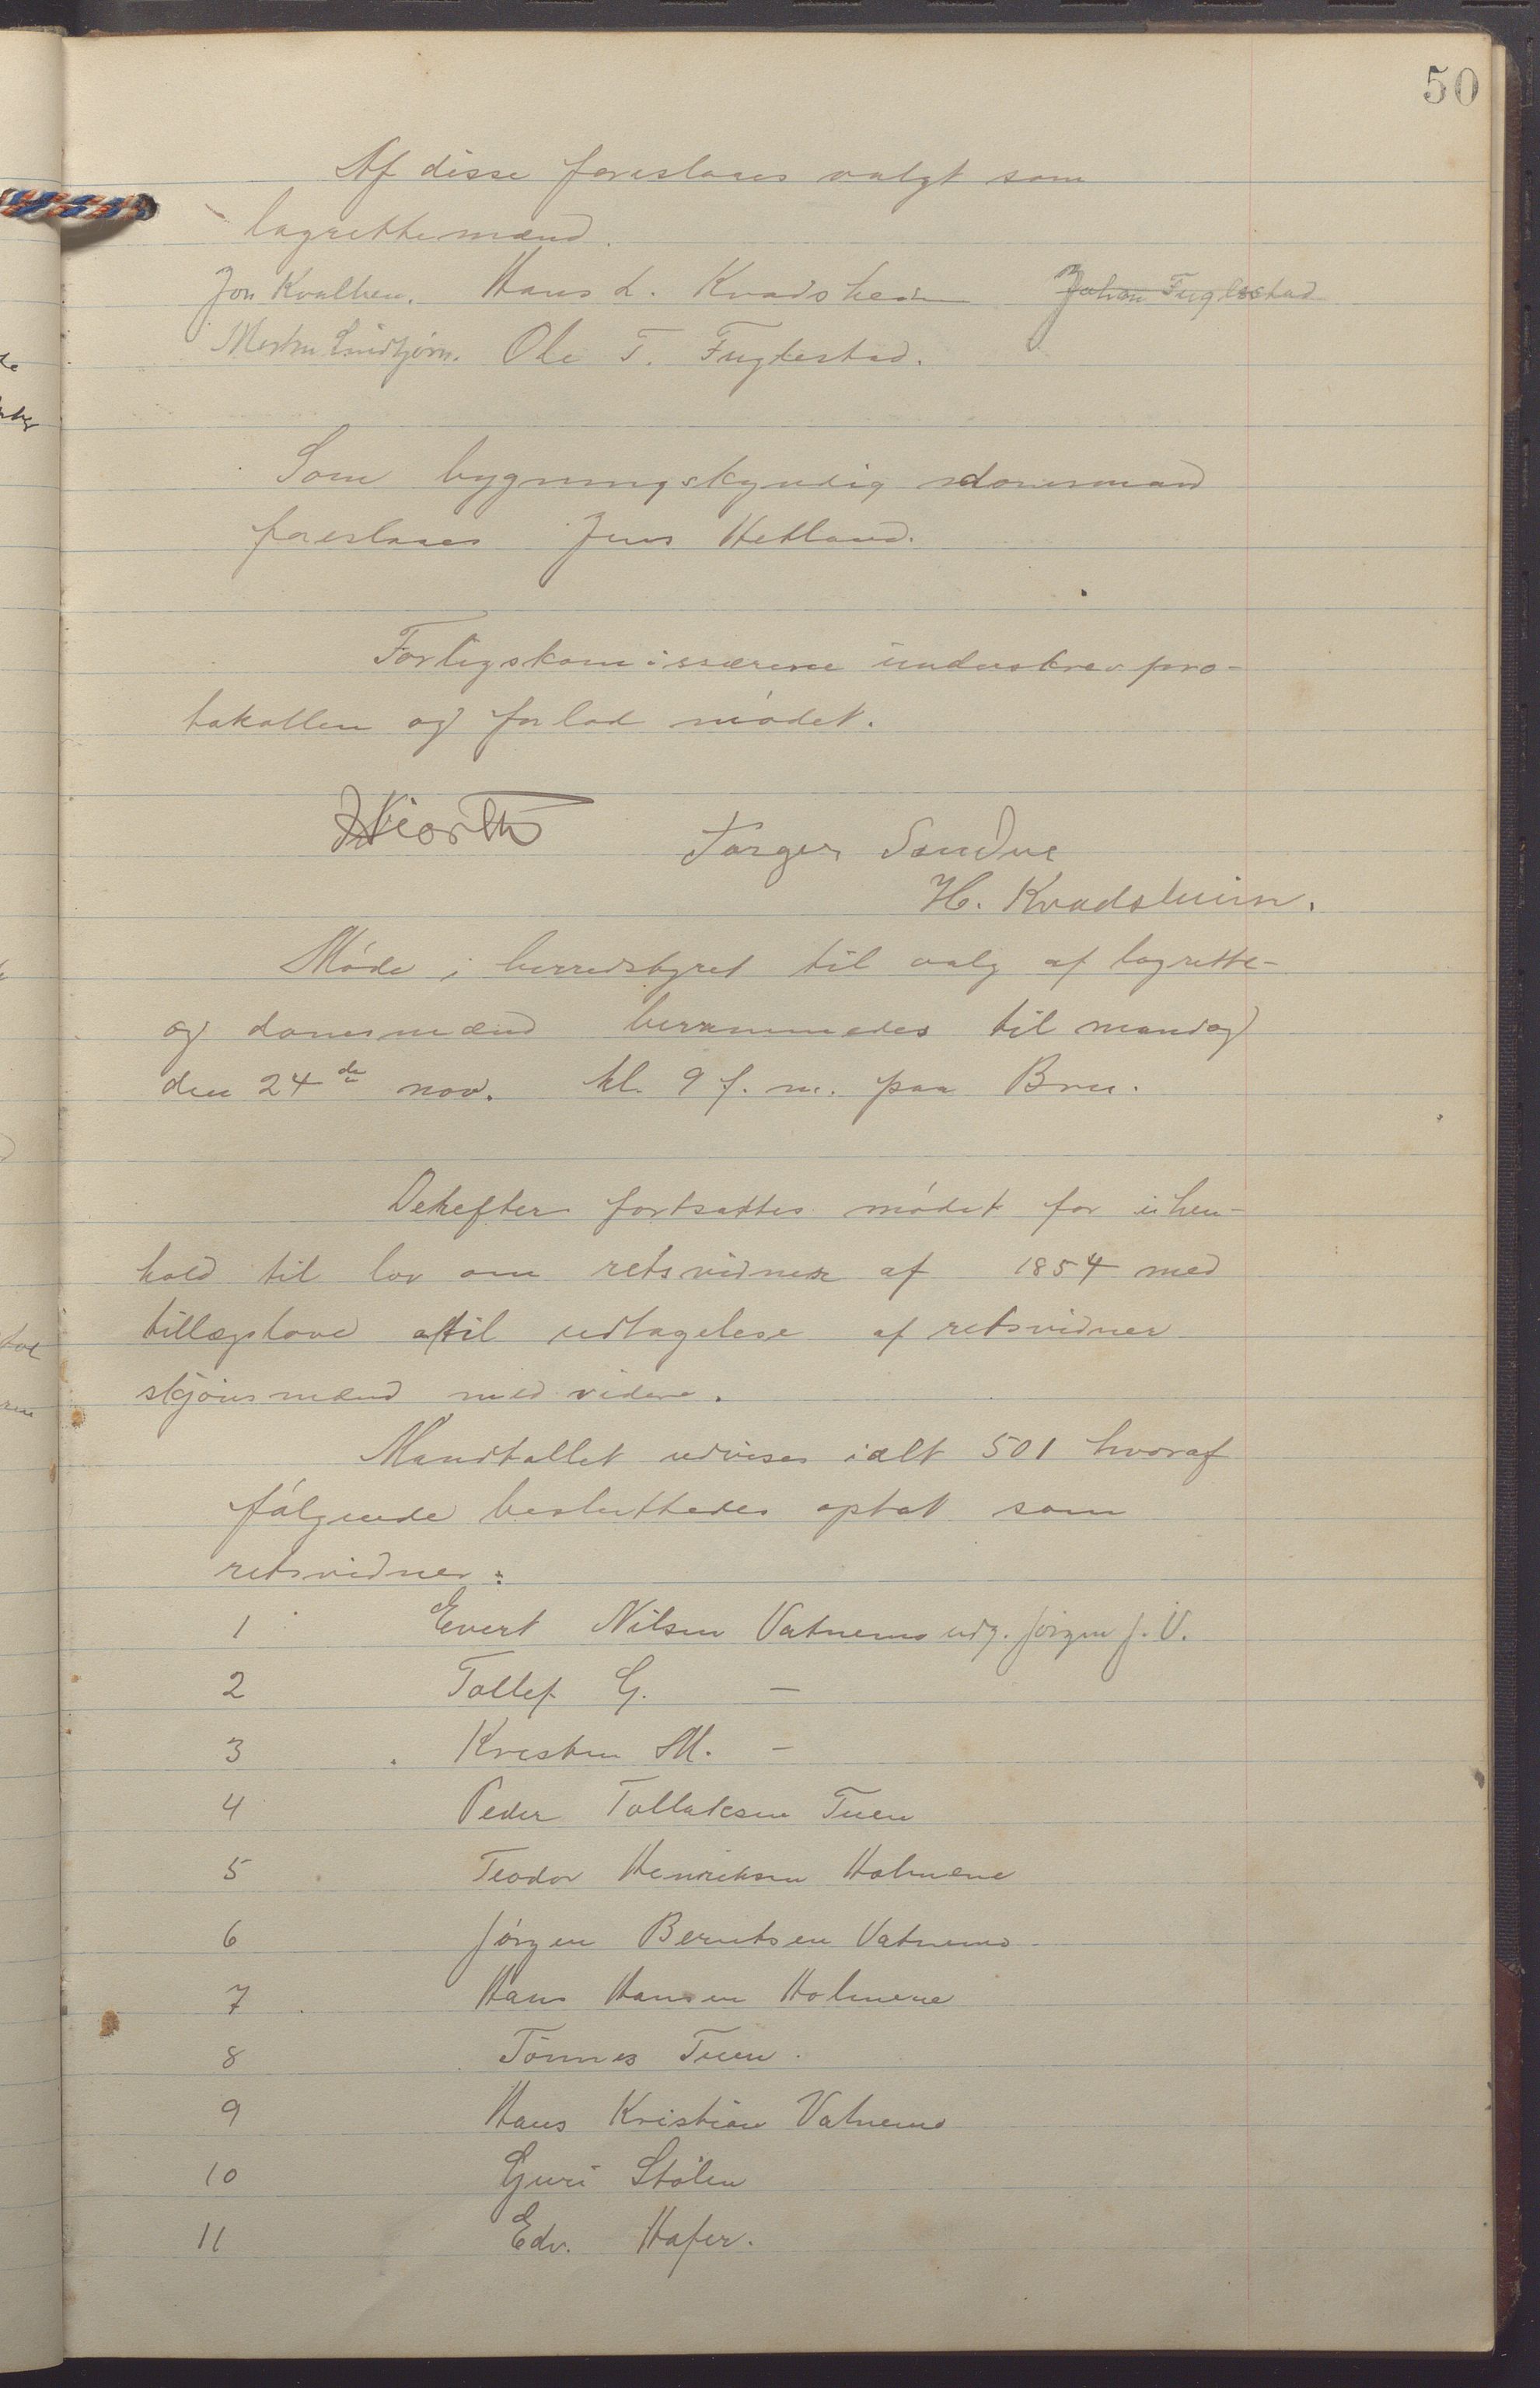 50
Af disse foreslaaes valgt som
lagrettemænd.
Jon Kvalhen. Hans L. Kvadsheim Johan Fuglestad
Ole T. Fuglestad.
Som bygningskyndig domsmand
foreslaaes Jens Hetland.
Forligskomissærene underskrev pro-
tokollen og forlod mødet.
Torger Sandve
H. Kvadsheim.
Møde i herredstyret til valg af lagrette-
og domsmænd berammedes til mandag
den 24de nov. kl. 9 f. m. paa Bru.
Derefter fortsattes mødet for i hen-
hold til lov om retsvidner af 1854 med
tillægslove til udtagelse af retsvidner
skjønsmænd med videre.
Mandtallet udviser ialt 501 hvoraf
følgende besluttedes optat som
retsvidner:
1 Evert Nilsen Vatnemo udg. Jørgen J. V.
2 Tollef G. —
3 Kristen M. —
4 Peder Tollaksen Tuen
5 Teodor Henriksen Holmene
6 Jørgen Berntsen Vatnemo
7 Hans Hansen Holmene
8 Tönnes Tuen.
9 Hans Kristian Vatnemo
10 Guri Stølen
11 Edv. Hafer.